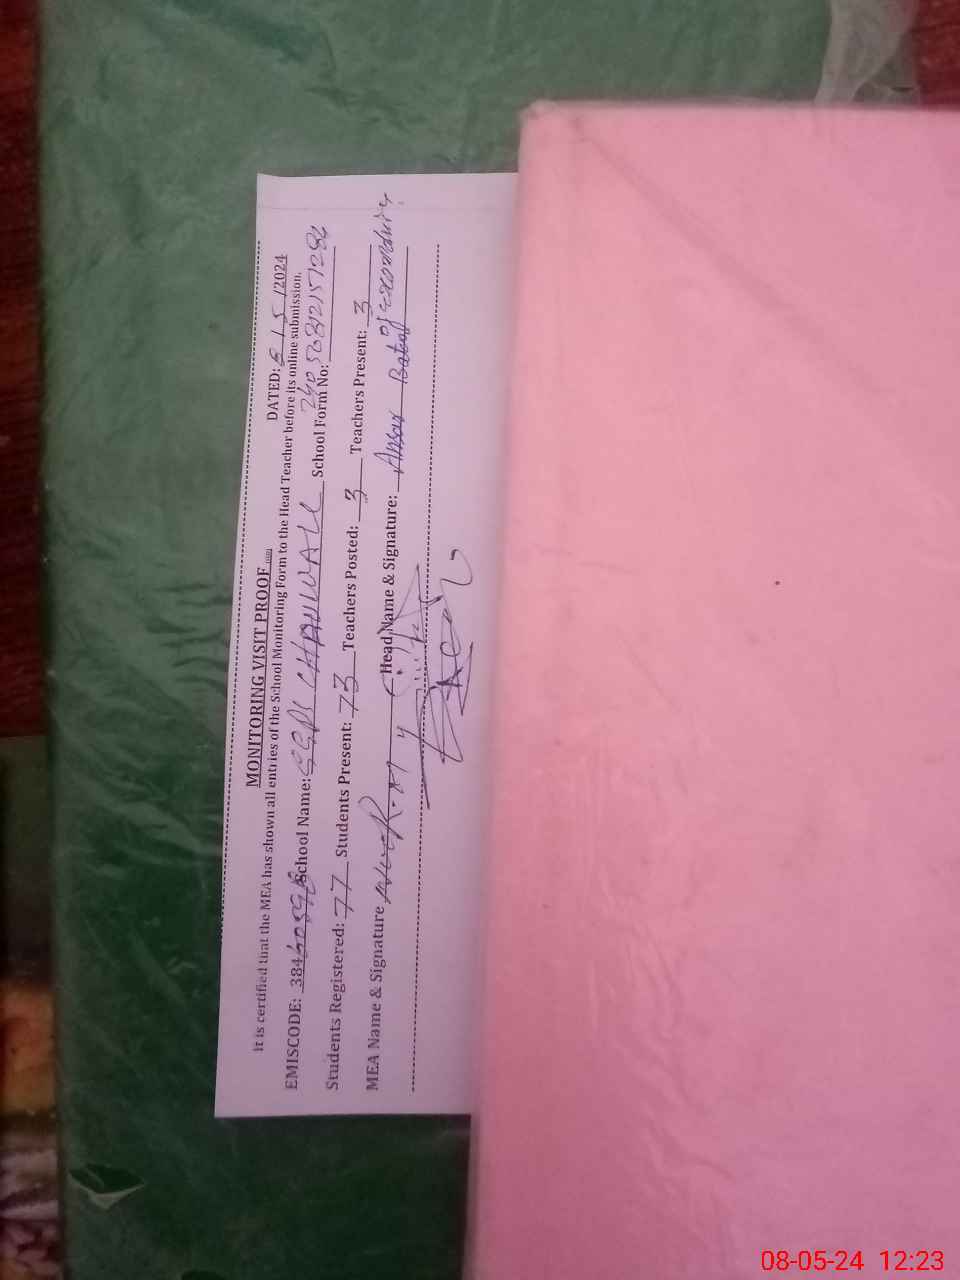 MONITORING VISIT PROOF
DATED: 8/5/2024
It is certified that the MEA has shown all entries of the School Monitoring Form to the Head Teacher before its online submission.
EMISCODE: 384 School Name: CHANWALL School Form No:
Students Registered: 77 Students Present: 73 Teachers Posted: 3 Teachers Present: 3
MEA Name & Signature Head Name & Signature: Ansar
08-05-24 12:23